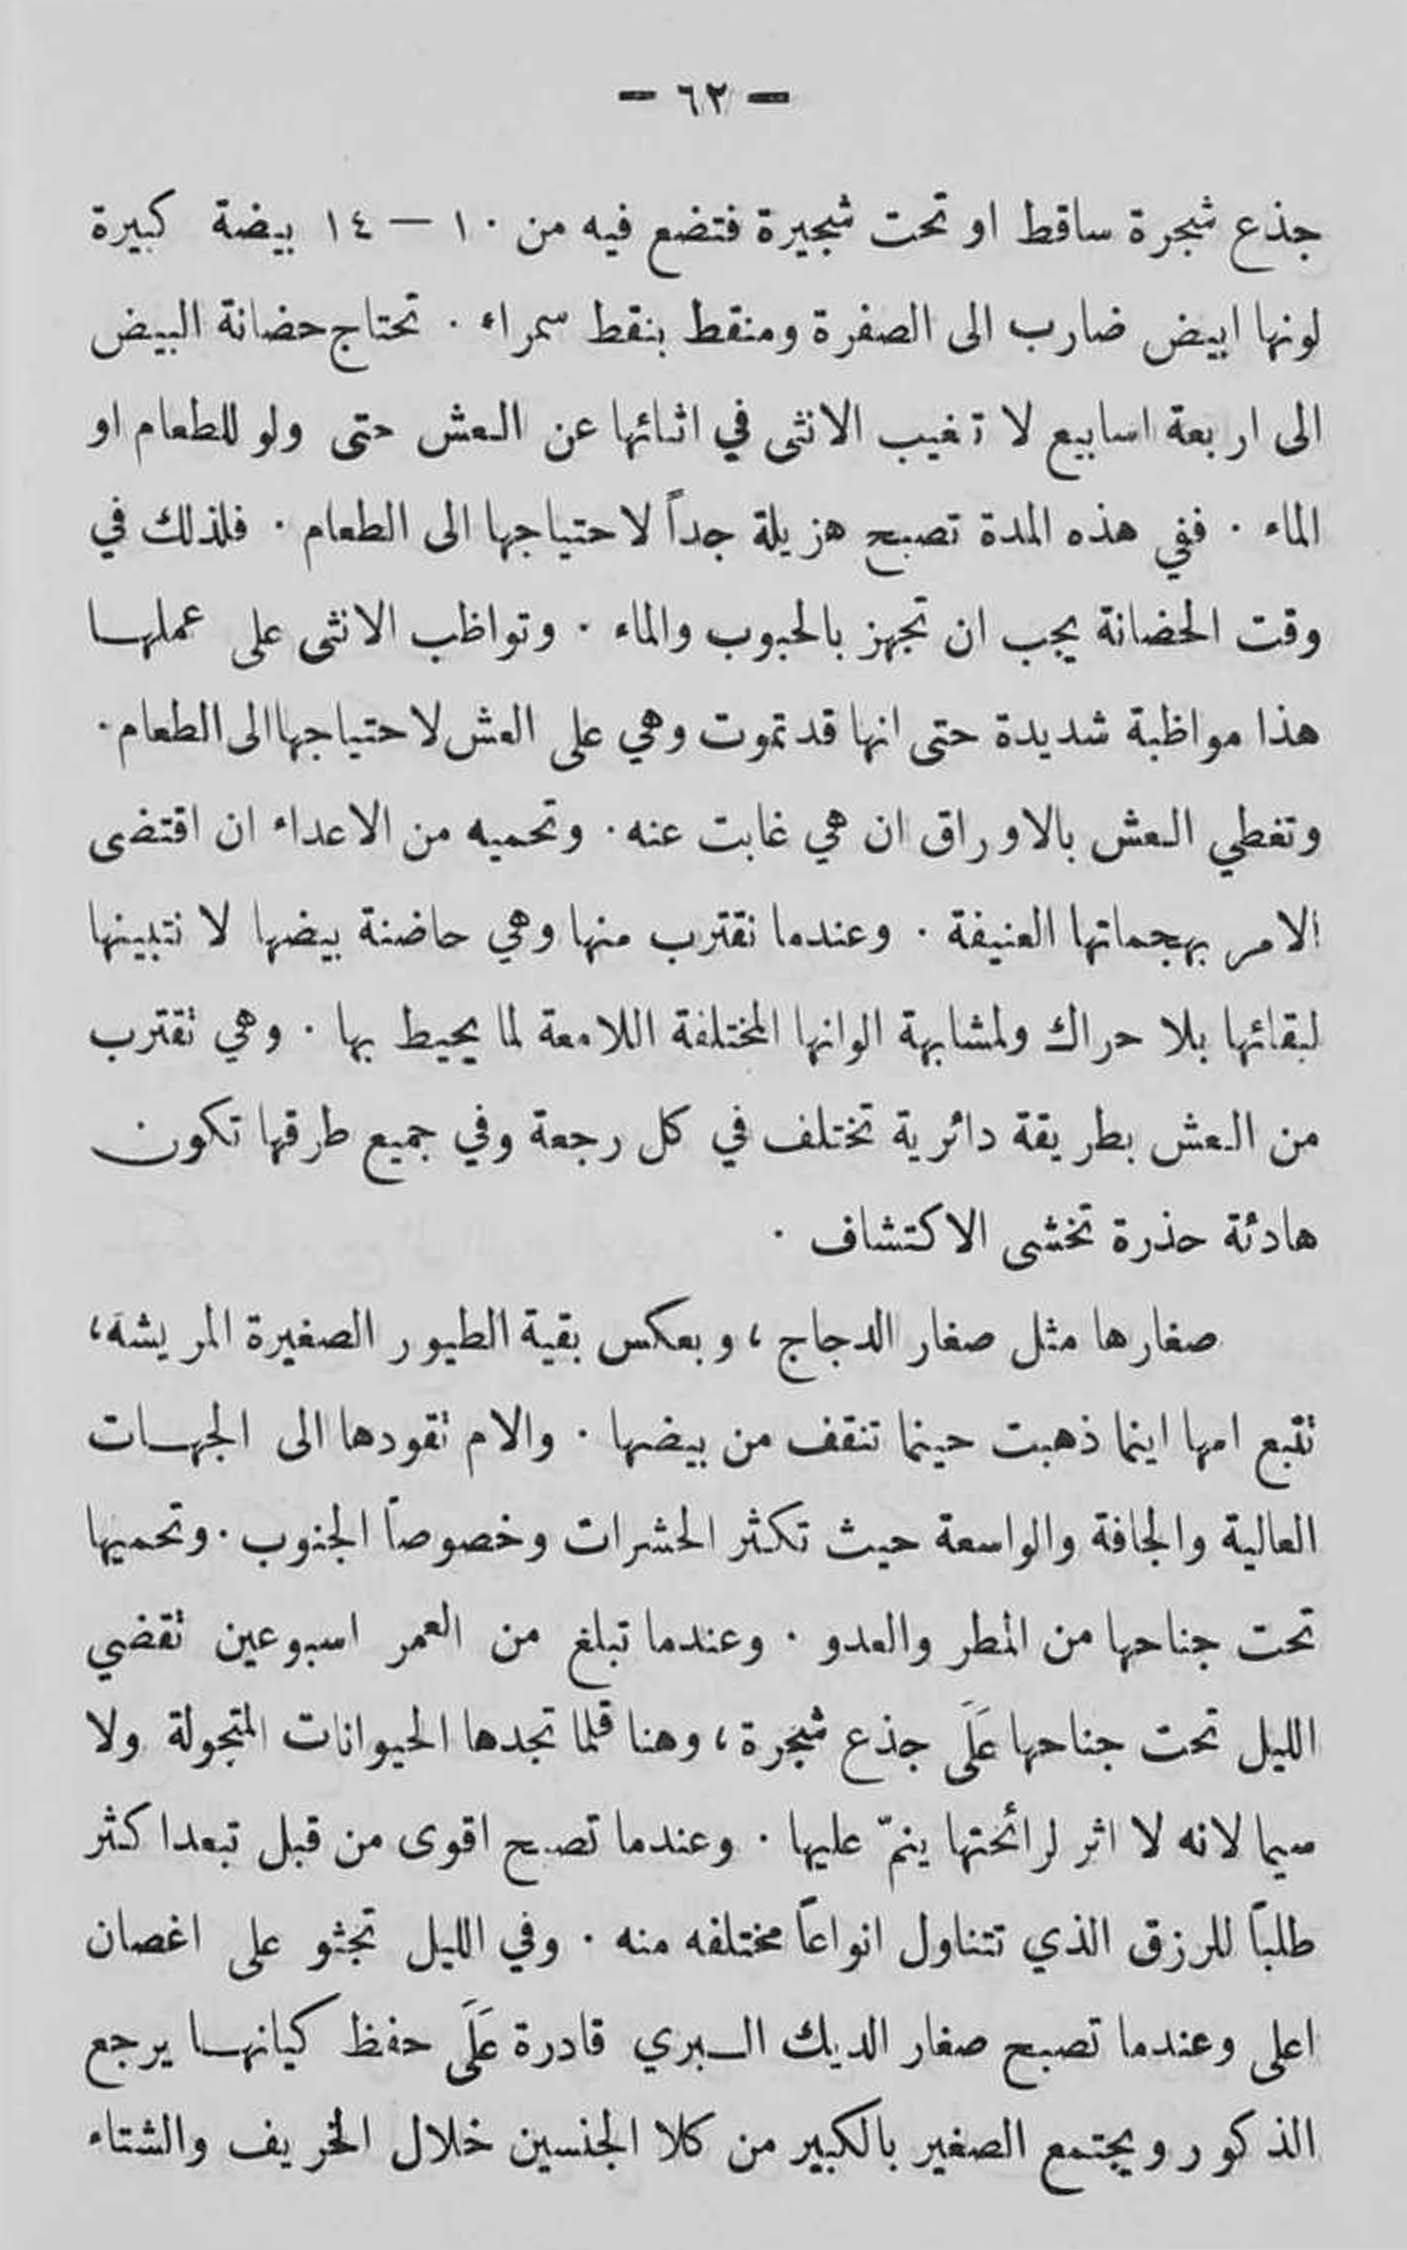 — ٦٢ —
جذع شجرة ساقط او تحت شجيرة فتضع فيه من ١٠ — ١٤ بيضة كبيرة
لونها ابيض ضارب الى الصفرة ومنقط بنقط سمراء . تحتاج حضانة البيض
الى اربعة اسابيع لا تغيب الانثى في اثنائها عن العش حتى ولو للطعام او
الماء . ففي هذه المدة تصبح هزيلة جداً لاحتياجها الى الطعام . فلذلك في
وقت الحضانة يجب ان تجهز بالحبوب والماء . وتواظب الانثى على عملها
هذا مواظبة شديدة حتى انها قد تموت وهي على العش لاحتياجها الى الطعام .
وتغطي العش بالاوراق ان هي غابت عنه . وتحميه من الاعداء ان اقتضى
الامر بهجماتها العنيفة . وعندما نقترب منها وهي حاضنة بيضها لا نتبينها
لبقائها بلا حراك ولمشابهة الوانها المختلفة اللامعة لما يحيط بها . وهي تقترب
من العش بطريقة دائرية تختلف في كل رجعة وفي جميع طرقها تكون
هادئة حذرة تخشى الاكتشاف .
صغارها مثل صغار الدجاج ، وبعكس بقية الطيور الصغيرة المريشه ،
تتبع امها اينما ذهبت حينما تنقف من بيضها . والام تقودها الى الجهات
العالية والجافة والواسعة حيث تكثر الحشرات وخصوصاً الجنوب . وتحميها
تحت جناحها من المطر والعدو . وعندما تبلغ من العمر اسبوعين تقضي
الليل تحت جناحها عَلَى جذع شجرة ، وهنا قلما تجدها الحيوانات المتجولة ولا
سيما لانه لا اثر لرائحتها ينمّ عليها . وعندما تصبح اقوى من قبل تبعد اكثر
طلباً للرزق الذي تتناول انواعاً مختلفه منه . وفي الليل تجثو على اغصان
اعلى وعندما تصبح صغار الديك البري قادرة عَلَى حفظ كيانها يرجع
الذكور ويجتمع الصغير بالكبير من كلا الجنسين خلال الخريف والشتاء